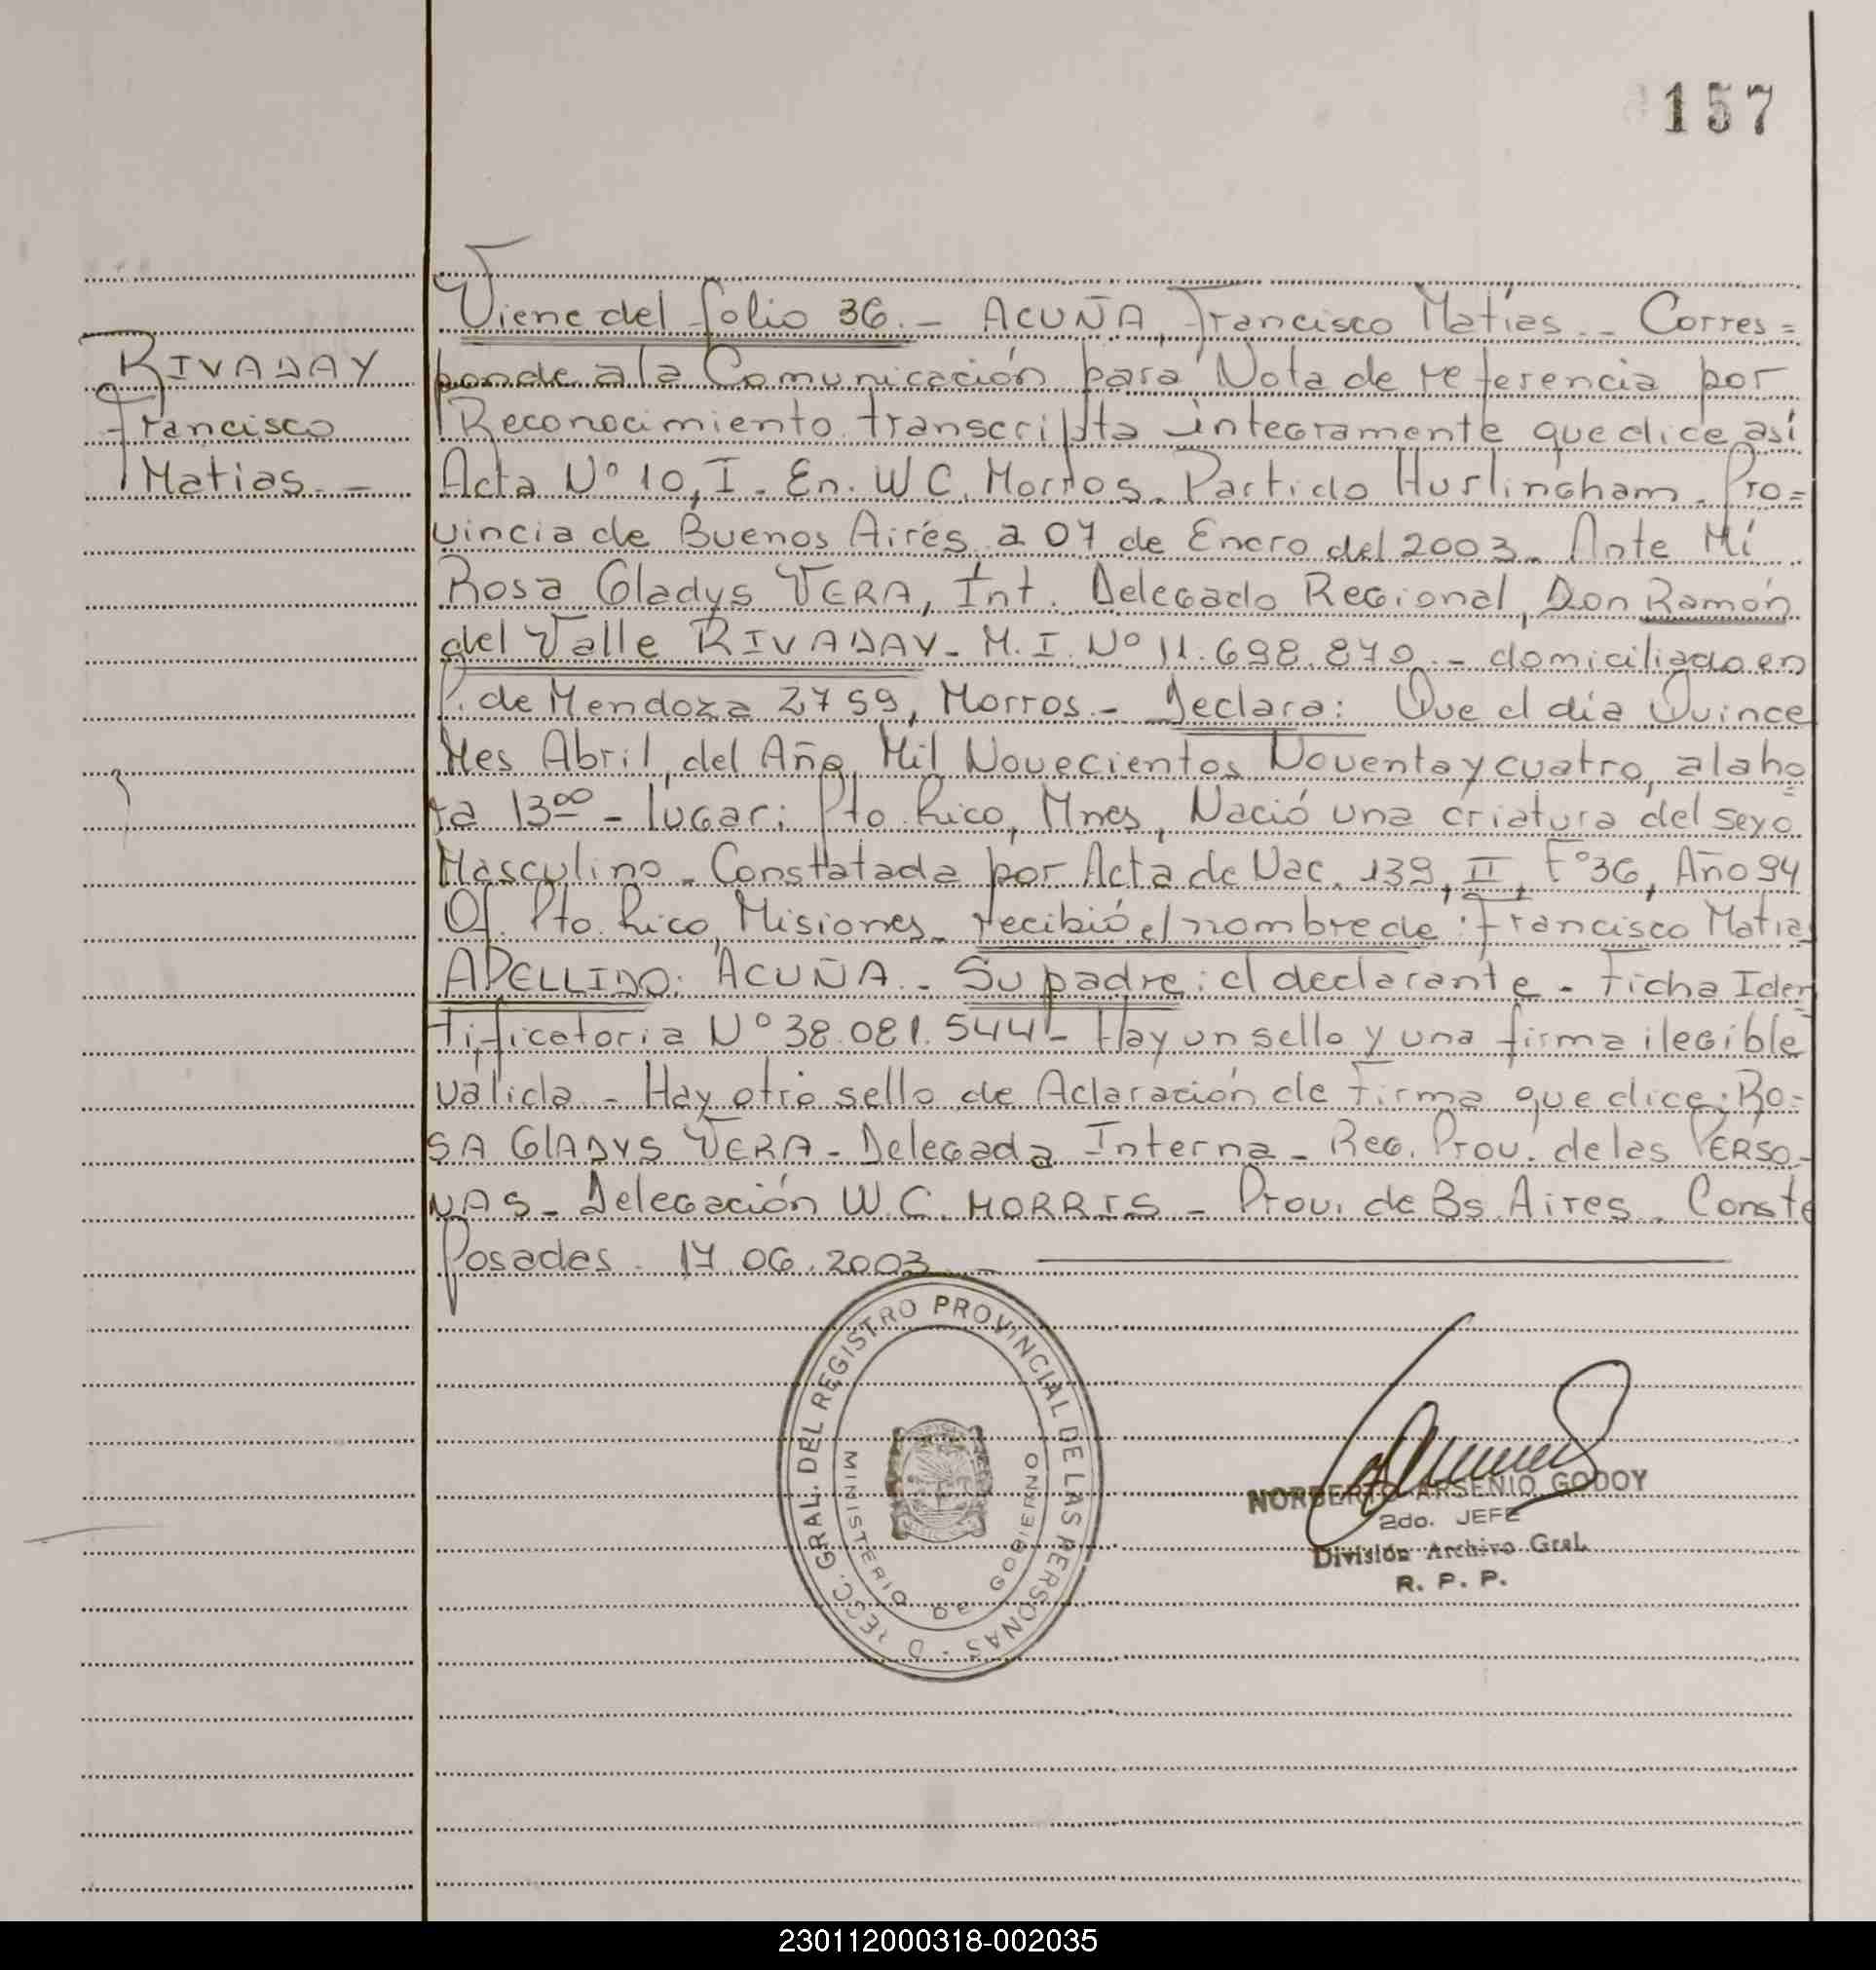 157
Viene del folio 36. - ACUÑA, Francisco Matías. - Corres=
RIVADAY
ponde a la Comunicación para Nota de referencia por
Francisco
Reconocimiento transcripta integramente que dice así
Matias. -
Acta Nº 10, I. En. W C. Morros. Partido Hurlingham. Pro=
vincia de Buenos Aires a 07 de Enero del 2003. Ante Mí
Rosa Gladys VERA, Int. Delegado Regional, Don Ramón
del Valle RIVADAV - M. I. Nº 11.698.870. - domiciliado en
P. de Mendoza 2759, Morros. - Declara: Que el día Quince
Mes Abril, del Año Mil Novecientos Noventa y cuatro, a la ho
ra 13⁰⁰ - lugar: Pto. Rico, Mnes, Nació una criatura del sexo
Masculino - Constatada por Acta de Nac. 139, II, Fº 36, Año 94
Of. Pto. Rico, Misiones - recibió el nombre de: Francisco Matia
APELLIDO: ACUÑA. - Su padre: el declarante - Ficha Iden
tificatoria Nº 38.081.544 - Hay un sello y una firma ilegible
válida. - Hay otro sello de Aclaración de Firma que dice: RO=
SA GlADYS VERA - Delegada Interna - Reg. Prov. de las PERSO-
NAS - Delegación W.C. MORRIS - Prov. de Bs. Aires. Conste
Posadas. 17.06.2003. -
DIRECC. GRAL. DEL REGISTRO PROVINCIAL DE LAS PERSONAS -
MINISTERIO DE GOBIERNO
NORBERTO ARSENIO GODOY
2do. JEFE
División Archivo Gral.
R. P. P.
230112000318-002035